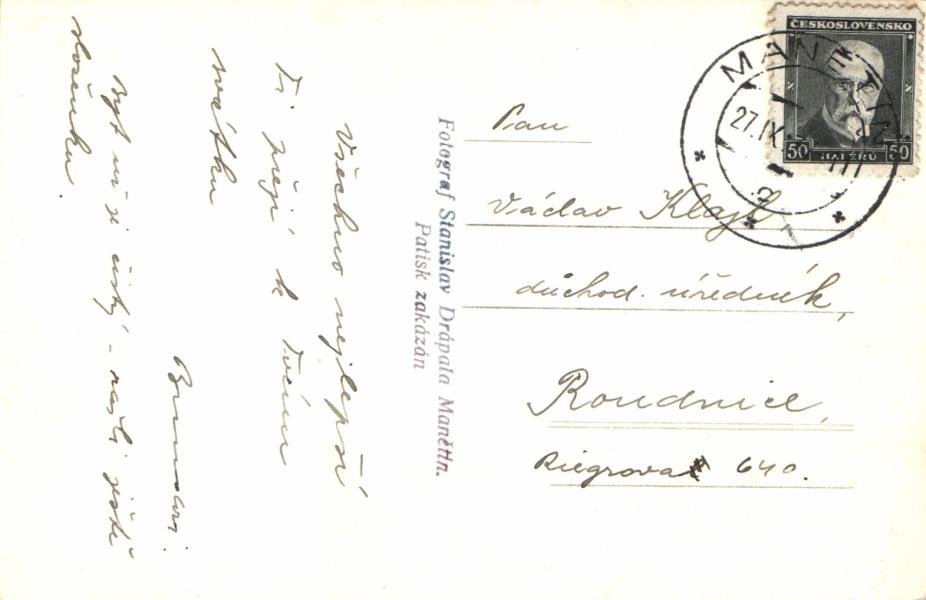 Všechno nejlepší
Ti přeji k Tvému
svátku
Byt už je čistý - našli ještě
složenku.
Fotograf Stanislav Drápala Manětín.
Patisk zakázán
ČESKOSLOVENSKO
50 HALÉŘŮ 50
MANĚTÍN
27.IX
Pan
Václav Klajl,
důchod. úředník,
Roudnice,
Riegrova 640.